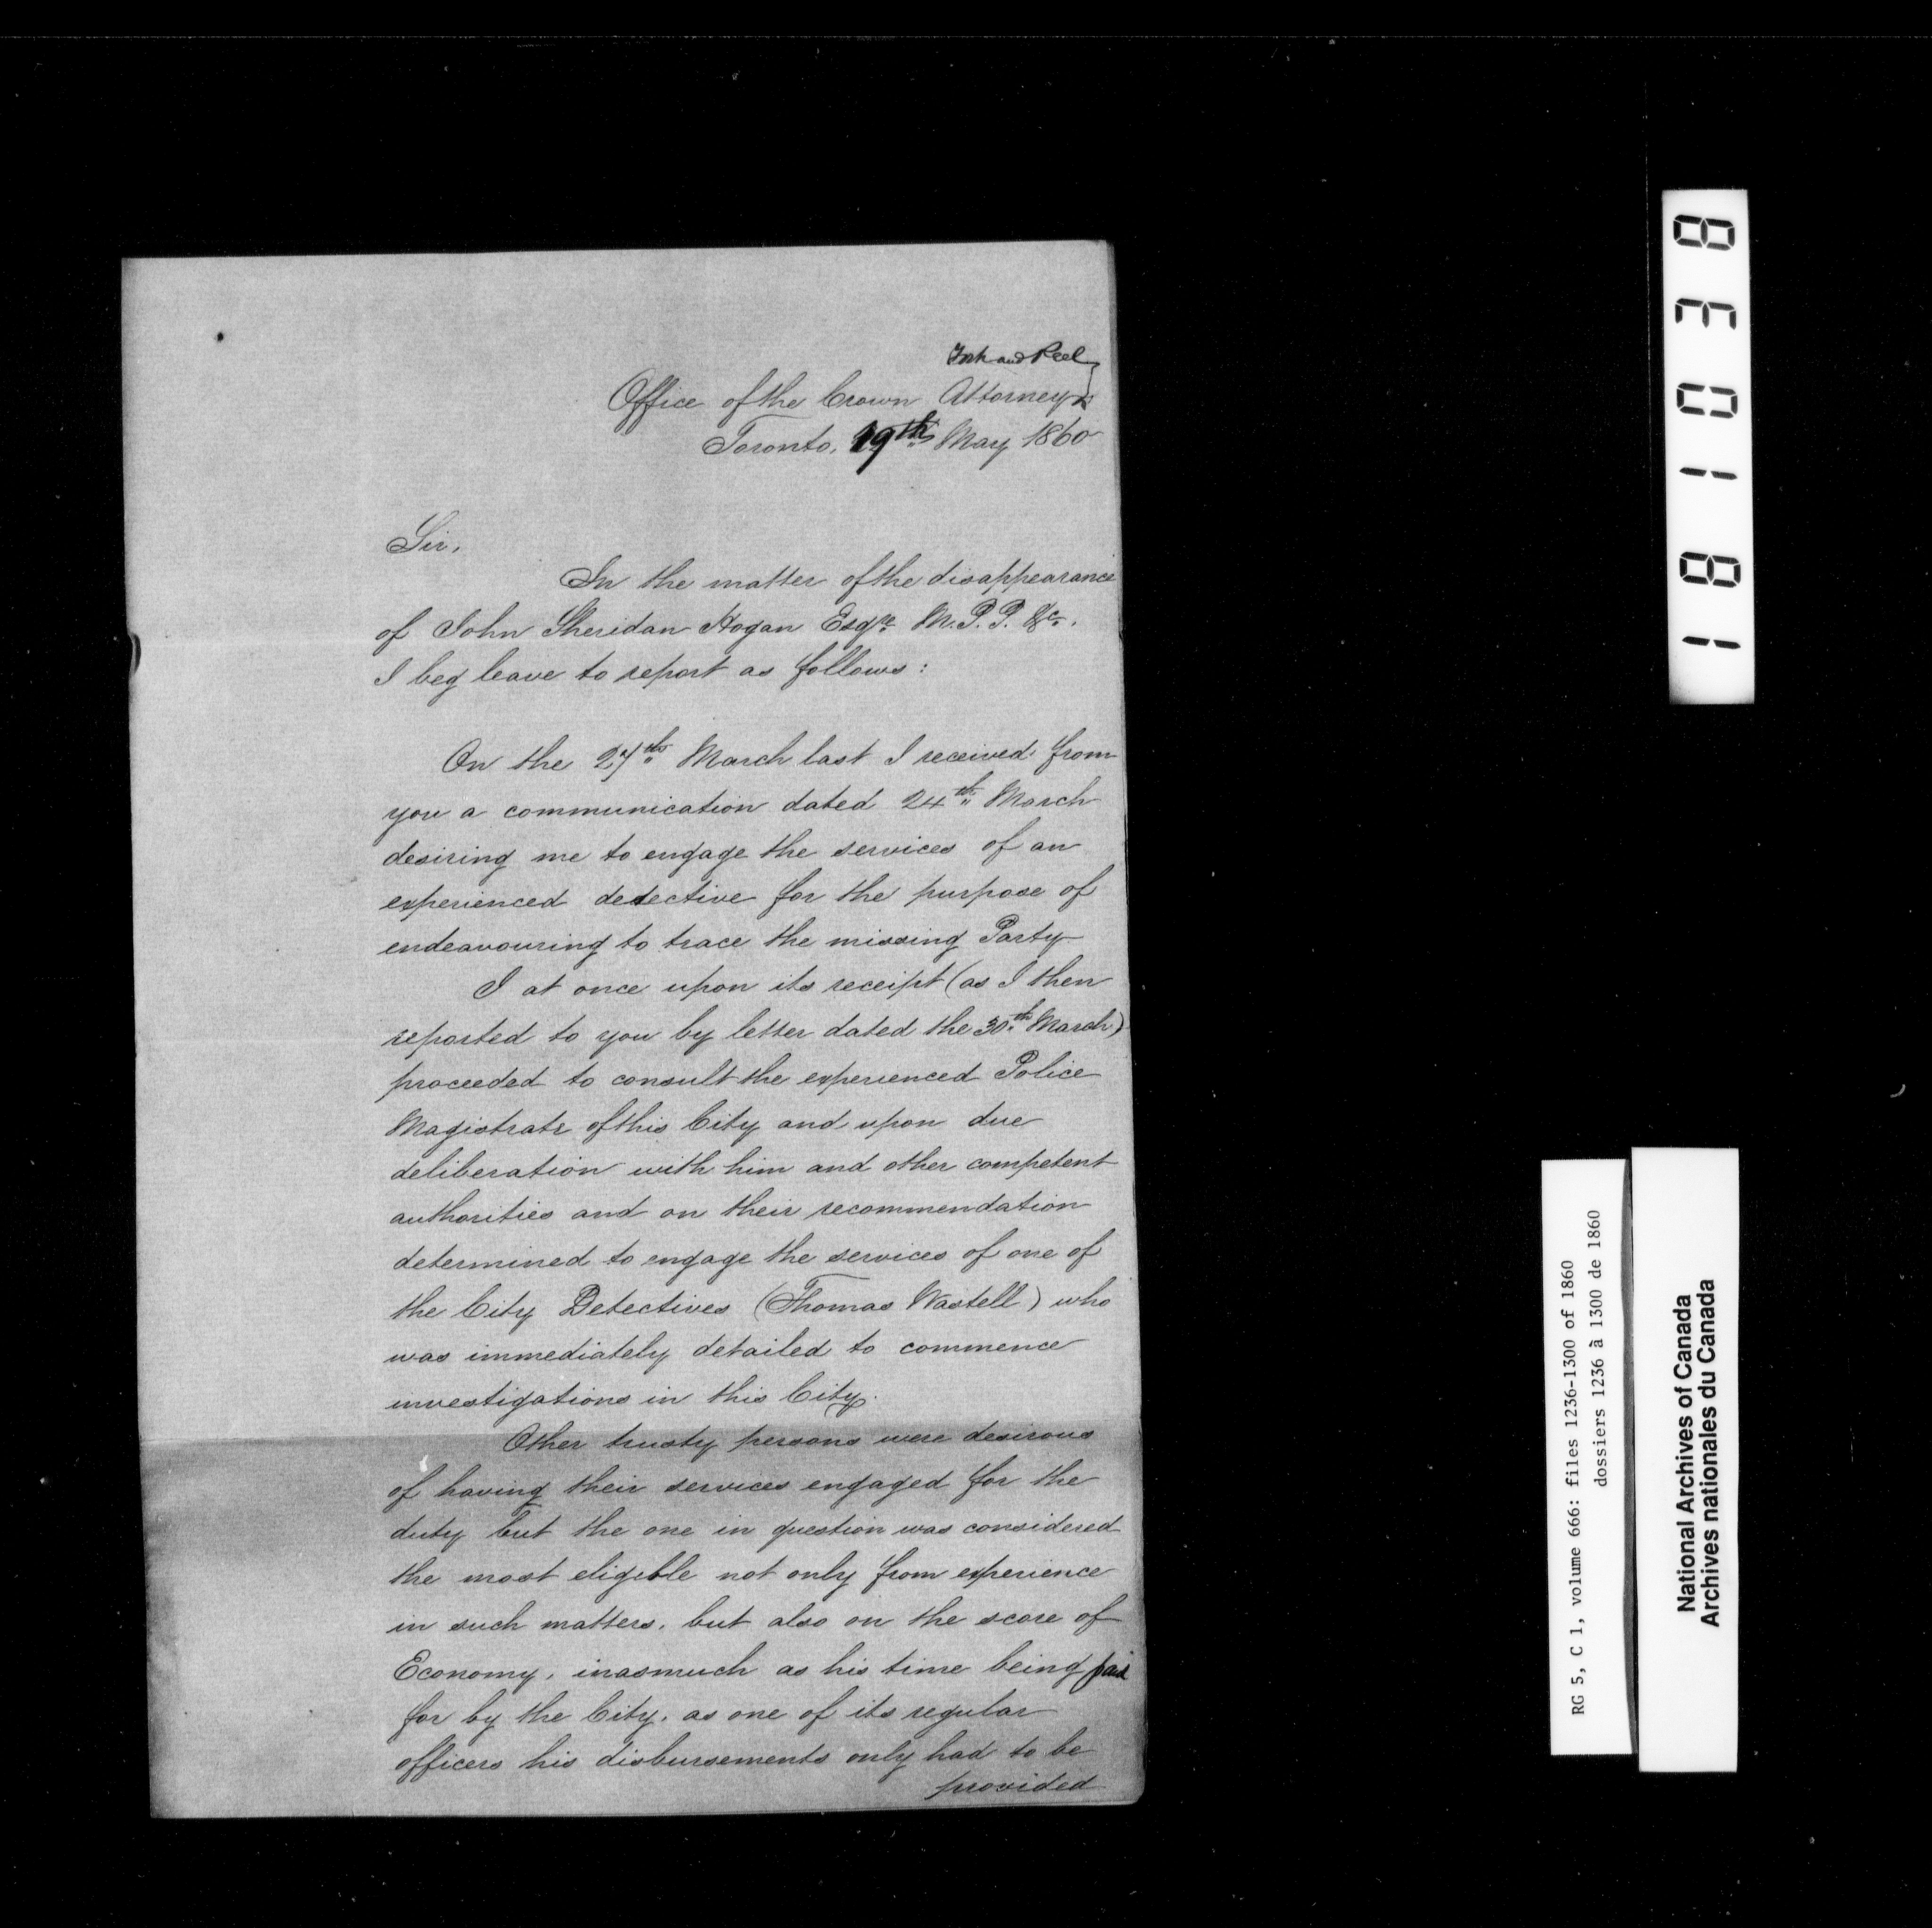 York and Peel
Office of the Crown Attorney
Toronto, 19th May 1860
Sir,
In the matter of the disappearance
of John Sheridan Hogan Esqre. M.P.P. &c.
I beg leave to report as follows:
On the 27th March last I received from
you a communication dated 24th March
desiring me to engage the services of an
experienced detective for the purpose of
endeavouring to trace the missing Party
I at once upon its receipt (as I then
reported to you by letter dated the 30th March)
proceeded to consult the experienced Police
Magistrate of this City and upon due
deliberation with him and other competent
authorities and on their recommendation
determined to engage the services of one of
the City Detectives (Thomas Wastell) who
was immediately detailed to commence
investigations in this City.
Other trusty persons were desirous
of having their services engaged for the
duty but the one in question was considered
the most eligible not only from experience
in such matters, but also on the score of
Economy, inasmuch as his time being paid
for by the City, as one of its regular
officers his disbursements only had to be
provided
181038
RG 5, C 1, volume 666: files 1236-1300 of 1860
dossiers 1236 à 1300 de 1860
National Archives of Canada
Archives nationales du Canada